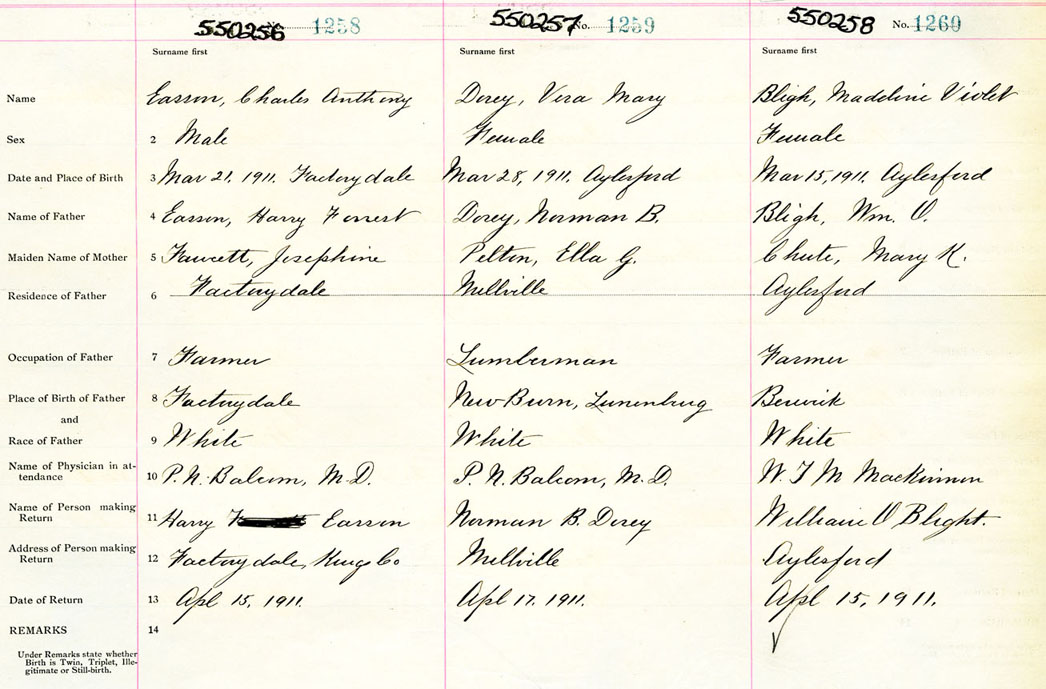 550256 1258 550257 No. 1259 550258 No. 1260
Surname first Surname first Surname first
Name Easson, Charles Anthony Dorey, Vera Mary Bligh, Madeline Violet
Sex 2 Male Female Female
Date and Place of Birth 3 Mar 21, 1911. Factorydale Mar 28, 1911. Aylesford Mar 15, 1911. Aylesford
Name of Father 4 Easson, Harry Forrest Dorey, Norman B. Bligh, Wm. O.
Maiden Name of Mother 5 Fawcett, Josephine Pelton, Ella G. Chute, Mary K.
Residence of Father 6 Factorydale Millville Aylesford
Occupation of Father 7 Farmer Lumberman Farmer
Place of Birth of Father 8 Factorydale New Burn, Lunenburg Berwick
and
Race of Father 9 White White White
Name of Physician in at-
tendance 10 P. N. Balcom, M.D. P. N. Balcom, M.D. W. T M MacKinnon
Name of Person making
Return 11 Harry Easson Norman B. Dorey William O Blight.
Address of Person making
Return 12 Factorydale, Kings Co Millville Aylesford
Date of Return 13 Apl 15, 1911. Apl 17. 1911. Apl 15, 1911.
REMARKS 14
Under Remarks state whether
Birth is Twin, Triplet, Ille-
gitimate or Still-birth.